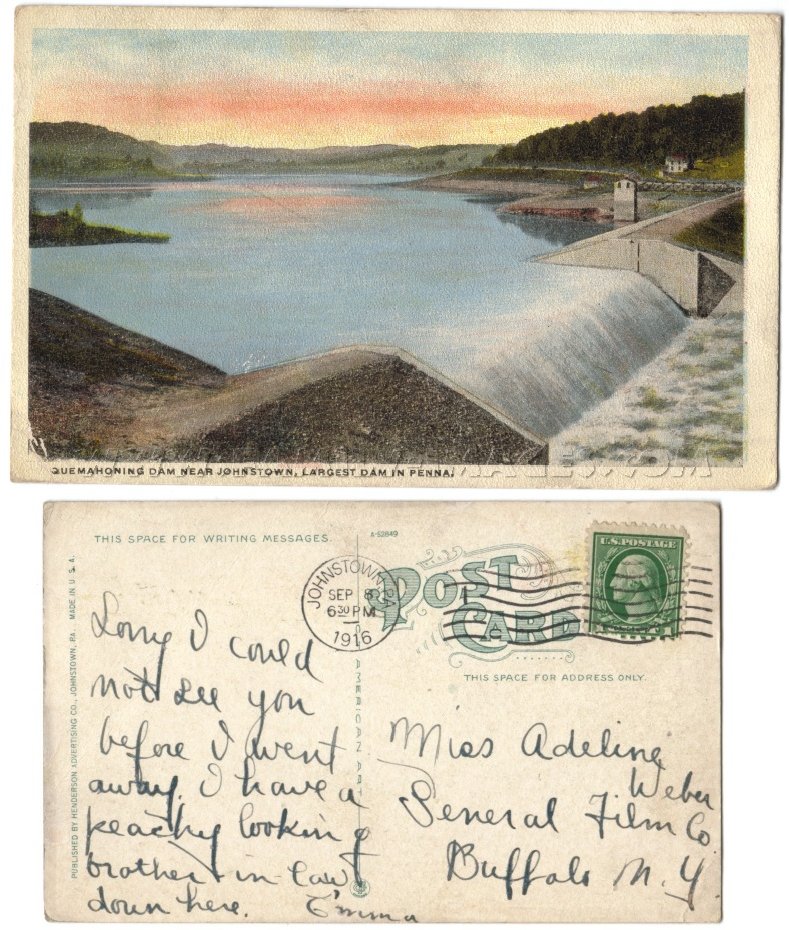 QUEMAHONING DAM NEAR JOHNSTOWN, LARGEST DAM IN PENNA.
THIS SPACE FOR WRITING MESSAGES.
A-52849
POST CARD
THIS SPACE FOR ADDRESS ONLY.
JOHNSTOWN, PA.
SEP 8
6 30 PM
1916
U.S. POSTAGE
PUBLISHED BY HENDERSON ADVERTISING CO., JOHNSTOWN, PA. MADE IN U.S.A.
AMERICAN ART
Sorry I could
not see you
before I went
away. I have a
peachy looking
brother-in-law
down here.
Emma
Miss Adeline
Weber
General Film Co
Buffalo N.Y.